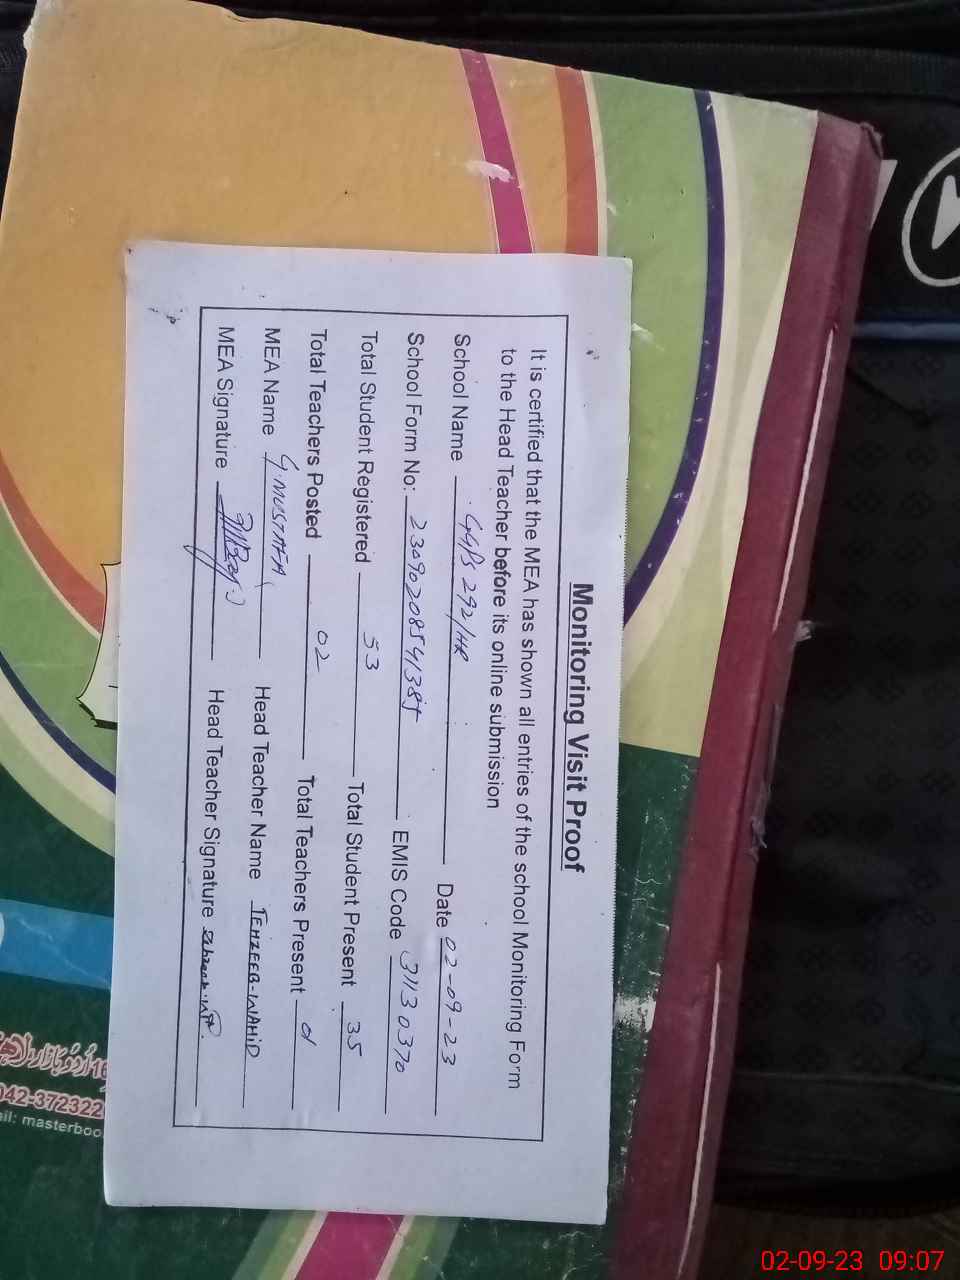 Monitoring Visit Proof
It is certified that the MEA has shown all entries of the school Monitoring Form
to the Head Teacher before its online submission
School Name GGPS 292/HR Date 02-09-23
School Form No: EMIS Code 31130370
Total Student Registered 53 Total Student Present 35
Total Teachers Posted 02 Total Teachers Present 01
MEA Name G.MUSTAFA Head Teacher Name TEHZEEB-WAHID
MEA Signature Head Teacher Signature
042-372322
ail: masterboo
02-09-23 09:07